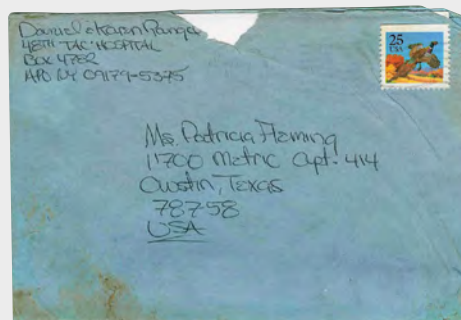 Daniel & Karen Range
48TH TAC HOSPITAL
BOX 4782
APO NY 09179-5375
25
USA
Ms. Patricia Fleming
11700 Metric Apt. 414
Austin, Texas
78758
USA